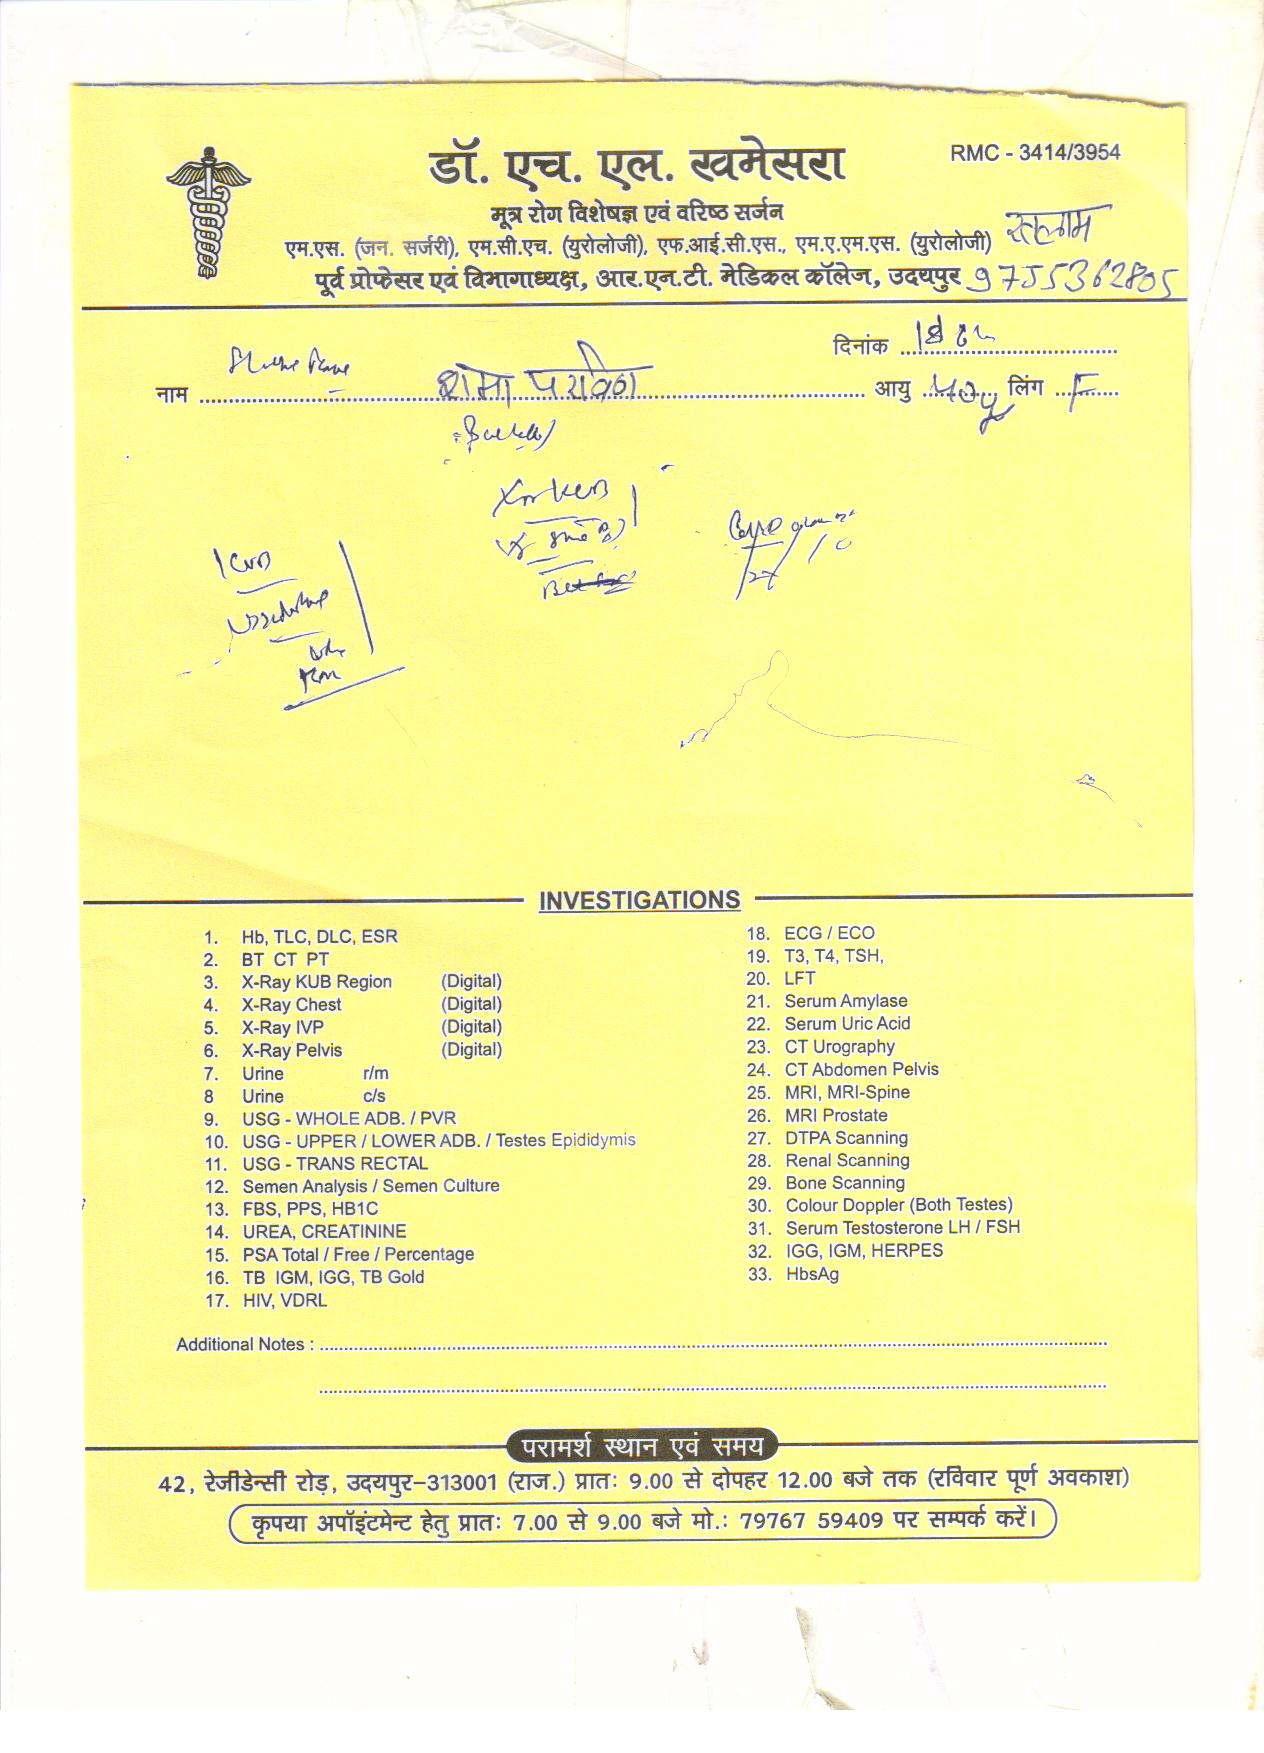 डॉ. एच. एल. खमेसरा
RMC - 3414/3954
मूत्र रोग विशेषज्ञ एवं वरिष्ठ सर्जन
एम.एस. (जन. सर्जरी), एम.सी.एच. (युरोलोजी), एफ.आई.सी.एस., एम.ए.एम.एस. (युरोलोजी)
पूर्व प्रोफेसर एवं विभागाध्यक्ष, आर.एन.टी. मेडिकल कॉलेज, उदयपुर 9755362805
दिनांक
नाम शमा परविन आयु लिंग F
INVESTIGATIONS
1. Hb, TLC, DLC, ESR
2. BT CT PT
3. X-Ray KUB Region (Digital)
4. X-Ray Chest (Digital)
5. X-Ray IVP (Digital)
6. X-Ray Pelvis (Digital)
7. Urine r/m
8 Urine c/s
9. USG - WHOLE ADB. / PVR
10. USG - UPPER / LOWER ADB. / Testes Epididymis
11. USG - TRANS RECTAL
12. Semen Analysis / Semen Culture
13. FBS, PPS, HB1C
14. UREA, CREATININE
15. PSA Total / Free / Percentage
16. TB IGM, IGG, TB Gold
17. HIV, VDRL
18. ECG / ECO
19. T3, T4, TSH,
20. LFT
21. Serum Amylase
22. Serum Uric Acid
23. CT Urography
24. CT Abdomen Pelvis
25. MRI, MRI-Spine
26. MRI Prostate
27. DTPA Scanning
28. Renal Scanning
29. Bone Scanning
30. Colour Doppler (Both Testes)
31. Serum Testosterone LH / FSH
32. IGG, IGM, HERPES
33. HbsAg
Additional Notes :
परामर्श स्थान एवं समय
42, रेजीडेन्सी रोड़, उदयपुर-313001 (राज.) प्रातः 9.00 से दोपहर 12.00 बजे तक (रविवार पूर्ण अवकाश)
कृपया अपॉइंटमेन्ट हेतु प्रातः 7.00 से 9.00 बजे मो.: 79767 59409 पर सम्पर्क करें।